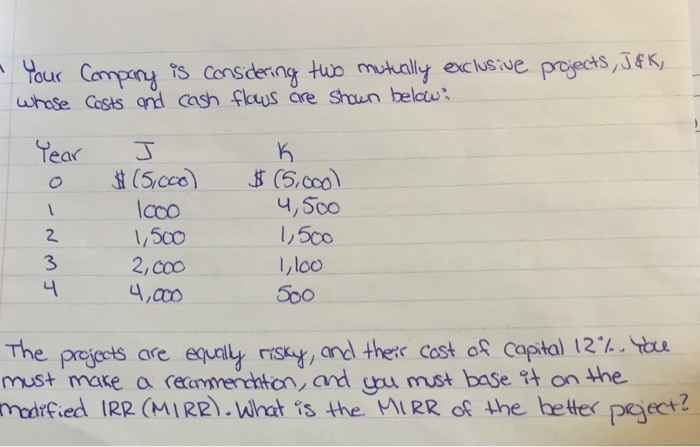 Your Company is considering two mutually exclusive projects, J & K,
whose costs and cash flows are shown below:
Year J K
0 $ (5,000) $ (5,000)
1 1000 4,500
2 1,500 1,500
3 2,000 1,100
4 4,000 500
The projects are equally risky, and their cost of capital 12%. You
must make a recommendation, and you must base it on the
modified IRR (MIRR). What is the MIRR of the better project?